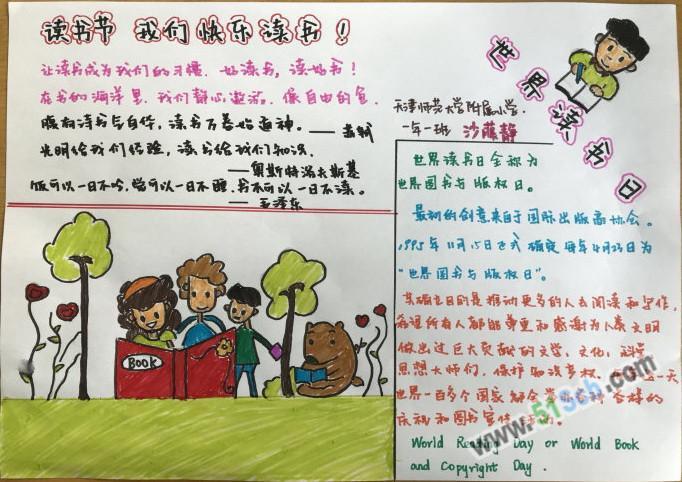 读书节 我们快乐读书!
让读书成为我们的习惯.好读书,读好书!
在书的海洋里.我们静心遨游.像自由的鱼.
腹有诗书气自华,读书万卷始通神.——苏轼
光明给我们经验,读书给我们知识.
——奥斯特洛夫斯基
饭可以一日不吃,觉可以一日不睡,书不可以一日不读。
——毛泽东
BOOK
世界读书日
天津师范大学附属小学.
一年一班 沙蓓静
世界读书日全称为
世界图书与版权日。
最初的创意来自于国际出版商协会。
1995年11月15日正式确定每年4月23日为
"世界图书与版权日"。
其确立目的是推动更多的人去阅读和写作,
希望所有人都能尊重和感谢为人类文明
做出过巨大贡献的文学,文化,科学
思想大师们,保护知识产权. 一天
世界一百多个国家都会举办各种各样的
庆祝和图书宣传活动.
World Reading Day or World Book
and Copyright Day .
www.51Sch.com